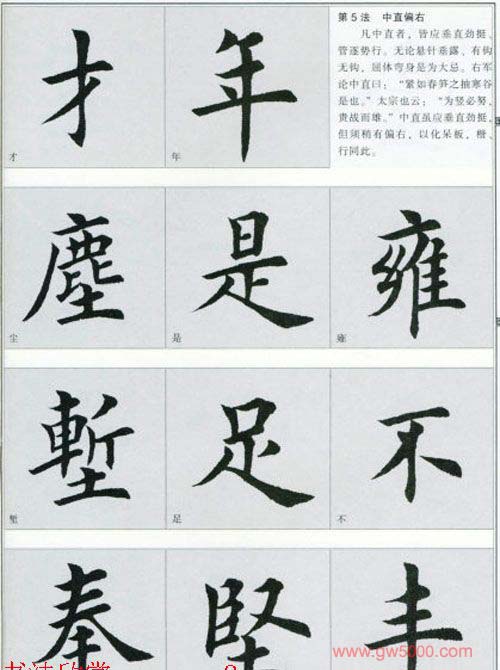 第5法 中直偏右
凡中直者，皆应垂直劲挺、
管逐势行。无论悬针垂露、有钩
无钩，屈体弯身是为大忌。右军
论中直曰：“紧如春笋之抽寒谷
是也。”太宗也云：“为竖必努，
贵战而雄。”中直虽应垂直劲挺，
但须稍有偏右，以化呆板，楷、
行同此。
才 年
才 年
塵 是 雍
尘 是 雍
塹 足 不
堑 足 不
奉 堅 丰
书法欣赏
www.gw5000.com